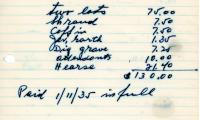 two lots 75.00
Shroud 7.50
Coffin 7.50
1.35
Dig grave 7.25
attendants 10.00
Hearse 21.40
$130.00
Paid 1/11/35 in full